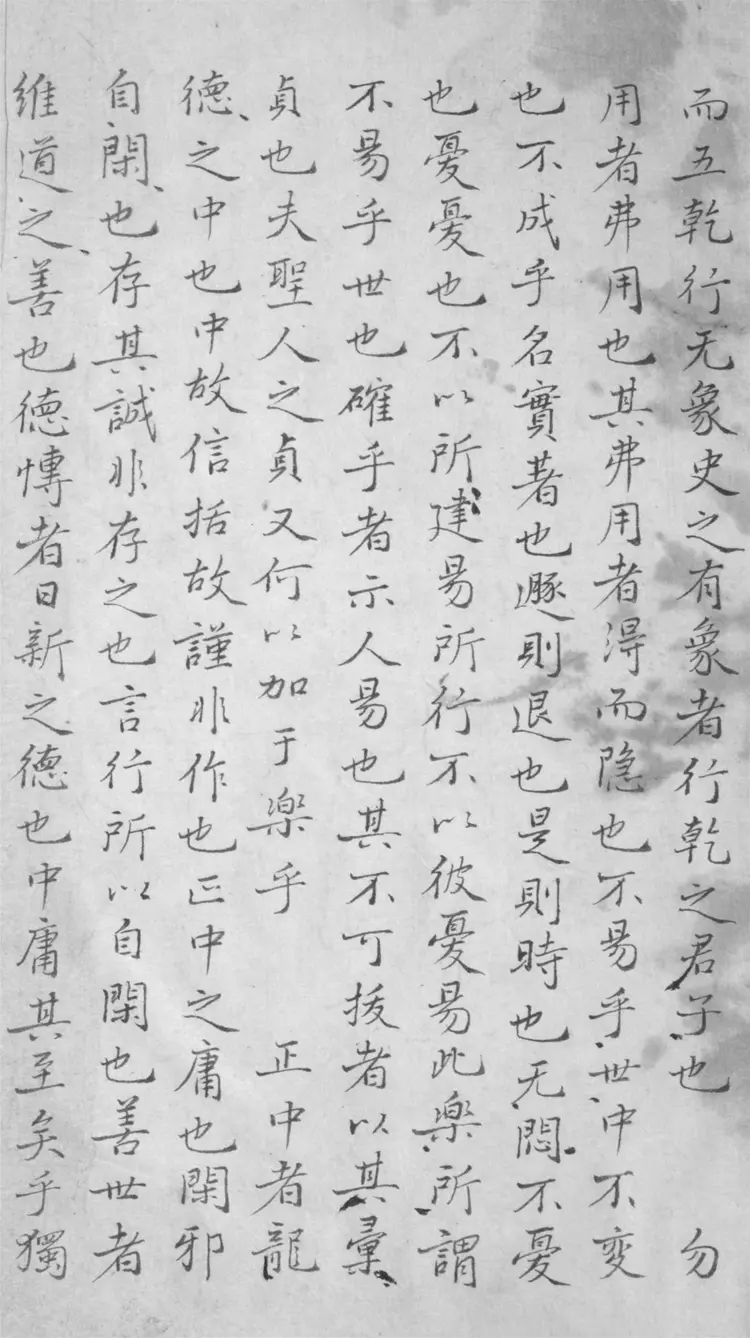 而五乾行无象史之有象者行乾之君子也 勿
用者弗用也其弗用者淂而隐也不易乎世中不变
也不成乎名實著也遯則退也是則時也无悶不憂
也憂憂也不以所建易所行不以彼憂易此楽所謂
不易乎世也確乎者示人易也其不可拔者以其彙
貞也夫聖人之貞又何以加于楽乎 正中者龍
德之中也中故信括故謹非作也正中之庸也閑邪
自閑也存其誠非存之也言行所以自閑也善世者
維道之善也德慱者日新之德也中庸其至矣乎獨